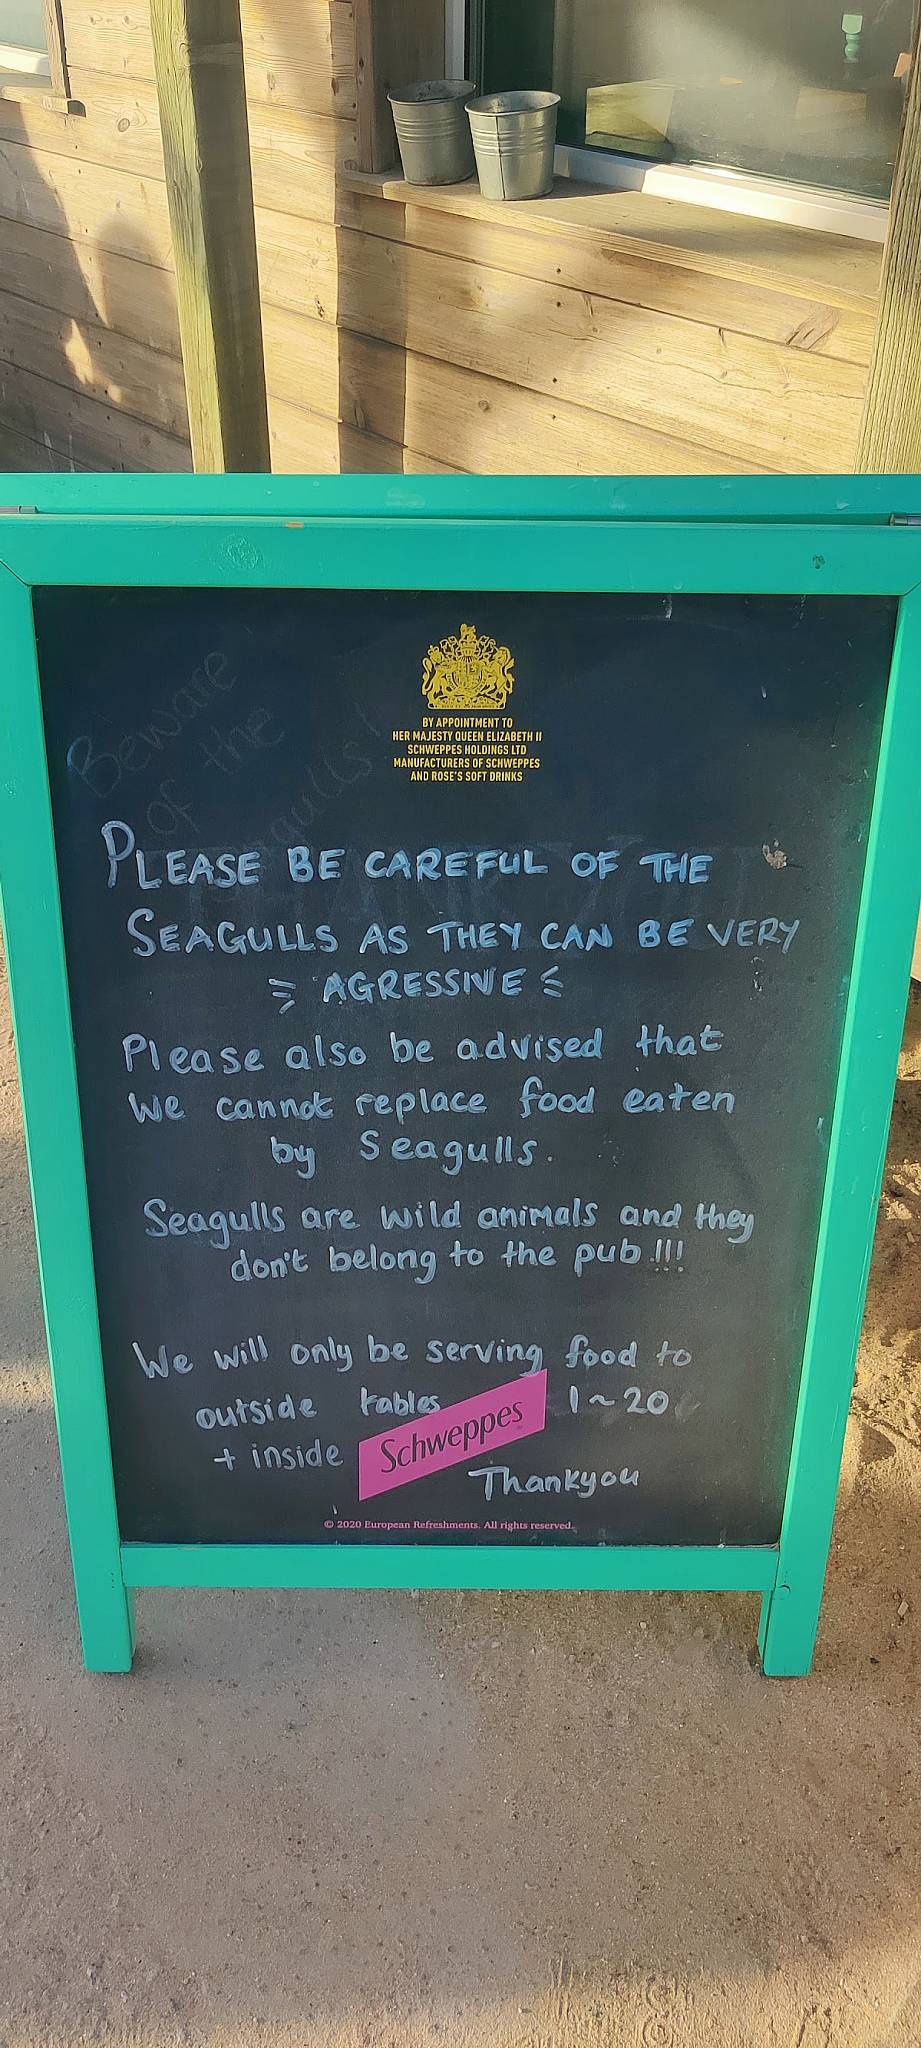 BY APPOINTMENT TO
HER MAJESTY QUEEN ELIZABETH II
SCHWEPPES HOLDINGS LTD
MANUFACTURERS OF SCHWEPPES
AND ROSE'S SOFT DRINKS
Beware
of the
Seagulls!
PLEASE BE CAREFUL OF THE
SEAGULLS AS THEY CAN BE VERY
AGRESSIVE
Please also be advised that
we cannot replace food eaten
by Seagulls.
Seagulls are wild animals and they
don't belong to the pub!!!
We will only be serving food to
outside tables 1~20
+ inside
Schweppes
Thankyou
© 2020 European Refreshments. All rights reserved.